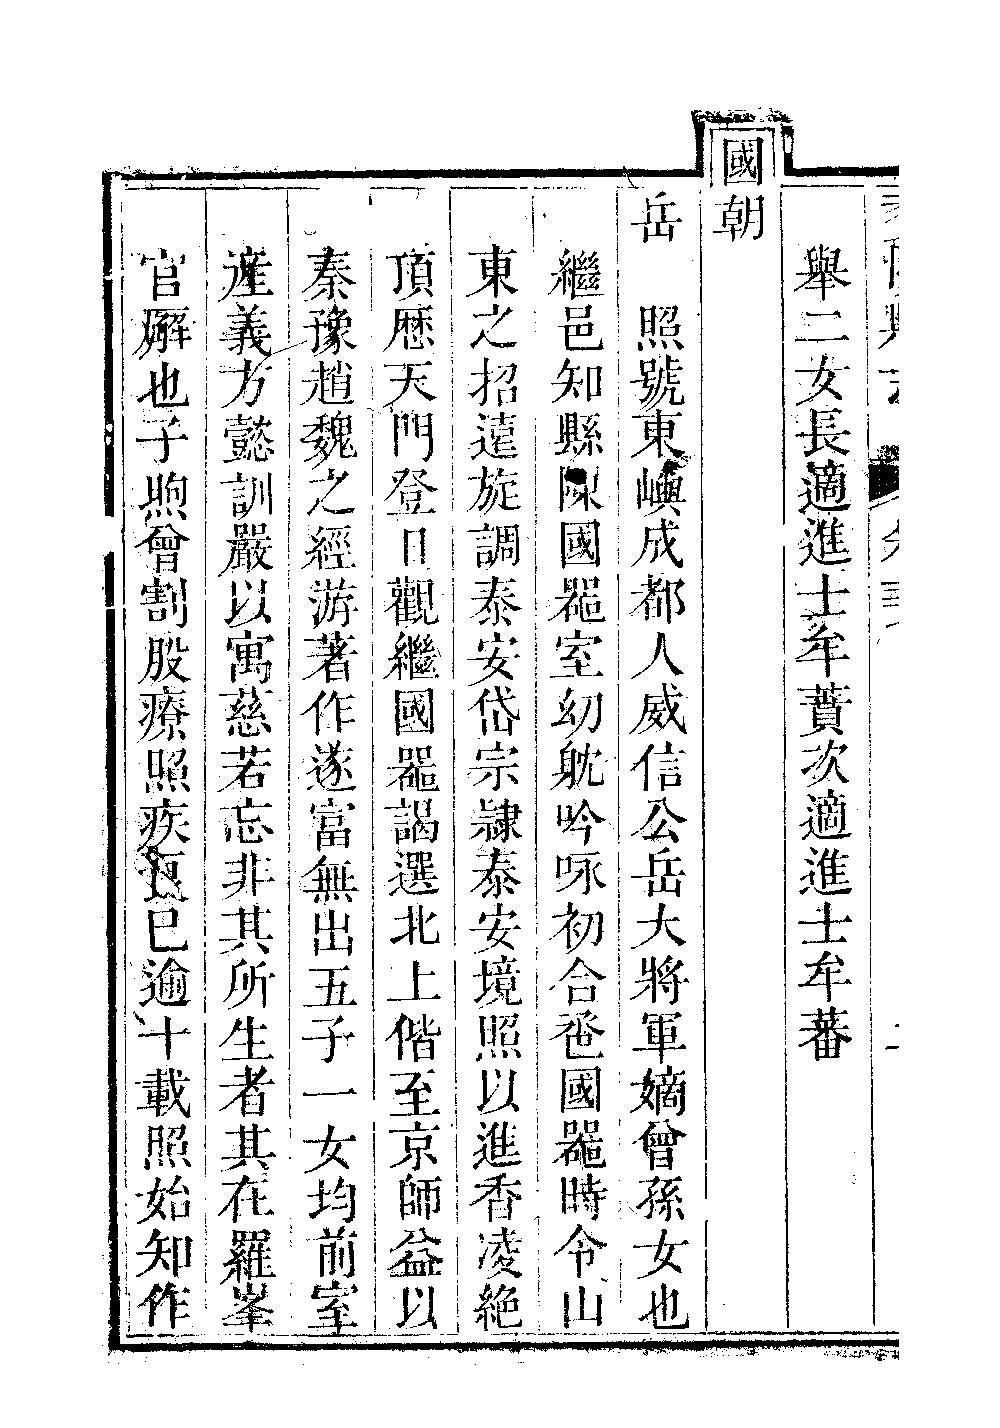 舉二女長適進士牟蕡次適進士牟蕃
國朝
岳　照號東嶼成都人威信公岳大將軍嫡曾孫女也
繼邑知縣陳國器室幼躭吟咏初合巹國器時令山
東之招遠旋調泰安岱宗隷泰安境照以進香凌絶
頂歷天門登日觀繼國器謁選北上偕至京師益以
秦豫趙魏之經游著作遂富無出五子一女均前室
產義方懿訓嚴以寓慈若忘非其所生者其在羅峯
官廨也子煦曾割股療照疾痕巳逾十載照始知作